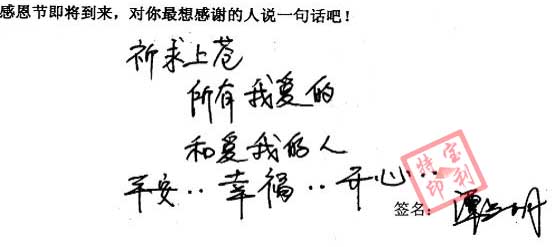 感恩节即将到来，对你最想感谢的人说一句话吧！
祈求上苍
所有我爱的
和爱我的人
平安‥幸福‥开心…
特宝
印利
签名：